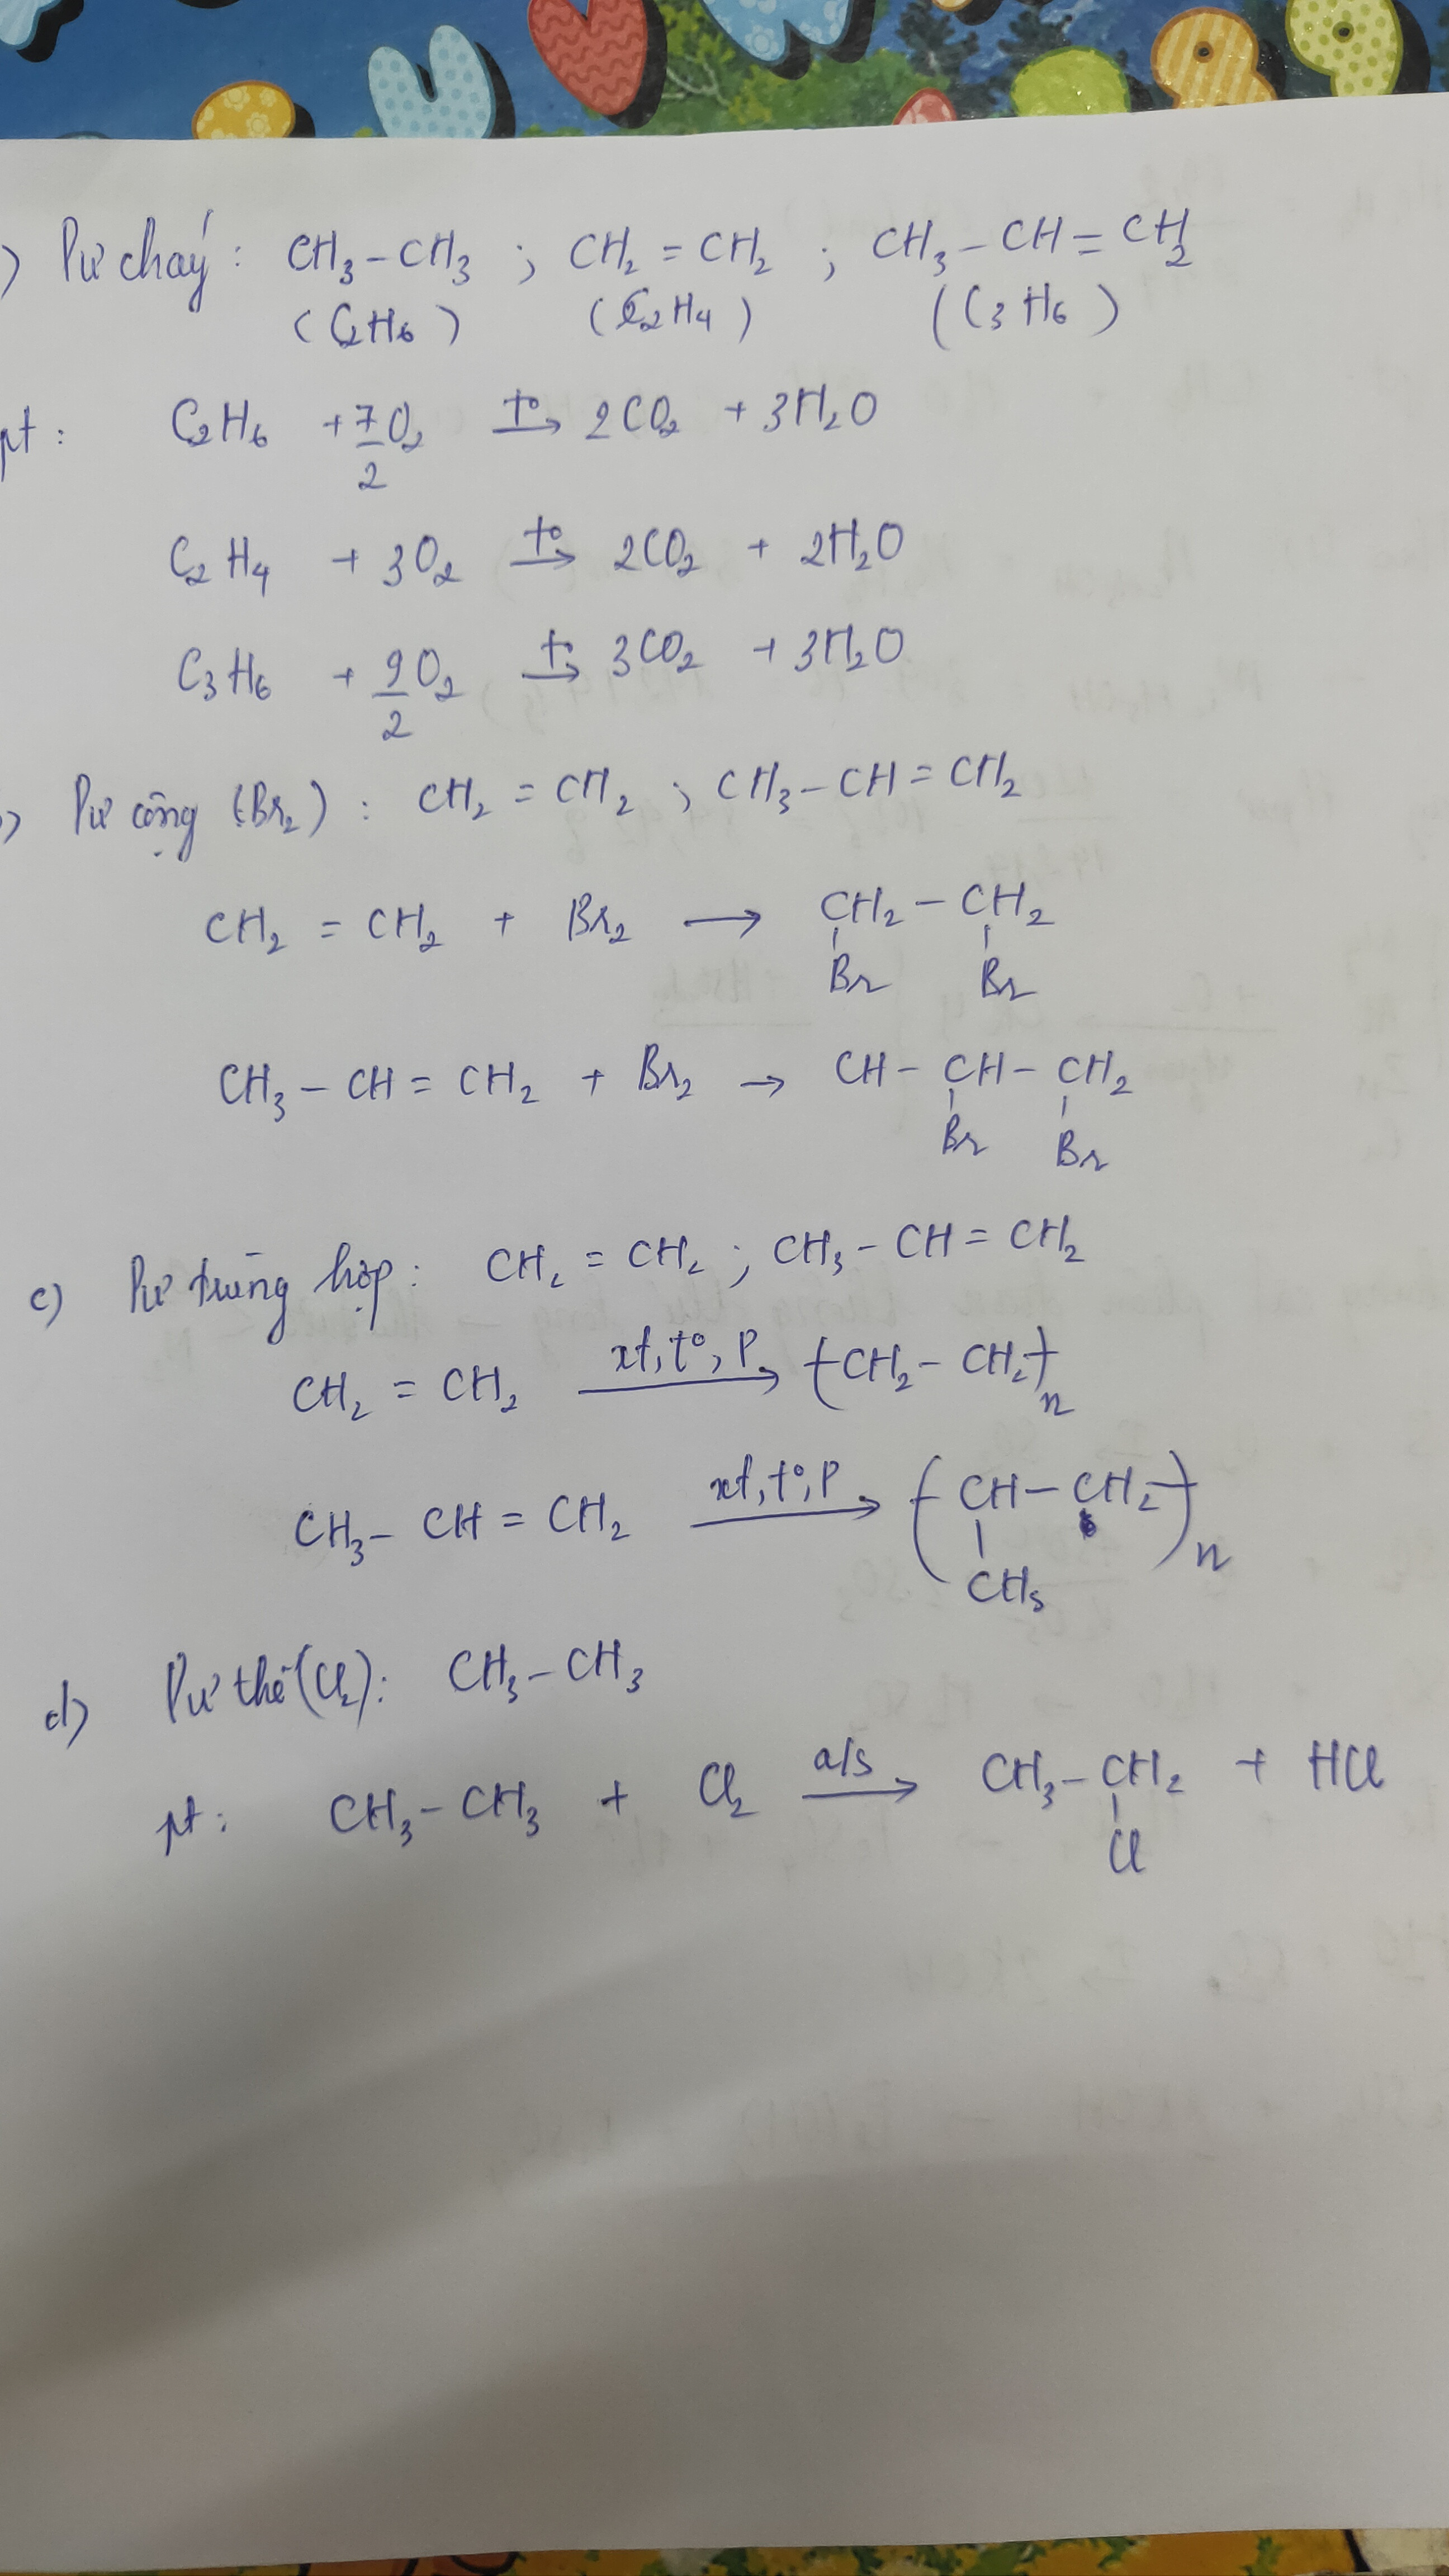 ) Pư cháy : CH3 – CH3 ; CH2 = CH2 ; CH3 – CH = CH2
(C2H6) (C2H4) (C3H6)
pt : C2H6 + 7/2 O2 t° → 2CO2 + 3H2O
C2H4 + 3O2 t° → 2CO2 + 2H2O
C3H6 + 9/2 O2 t° → 3CO2 + 3H2O
) Pư cộng (Br2) : CH2 = CH2 ; CH3 – CH = CH2
CH2 = CH2 + Br2 → CH2 – CH2
Br Br
CH3 – CH = CH2 + Br2 → CH – CH – CH2
Br Br
c) Pư trùng hợp : CH2 = CH2 ; CH3 – CH = CH2
CH2 = CH2 xt, t°, P → (CH2 – CH2)n
CH3 – CH = CH2 xt, t°, P → (CH – CH2)n
CH3
d) Pư thế (Cl2) : CH3 – CH3
pt : CH3 – CH3 + Cl2 a/s → CH3 – CH2 + HCl
Cl